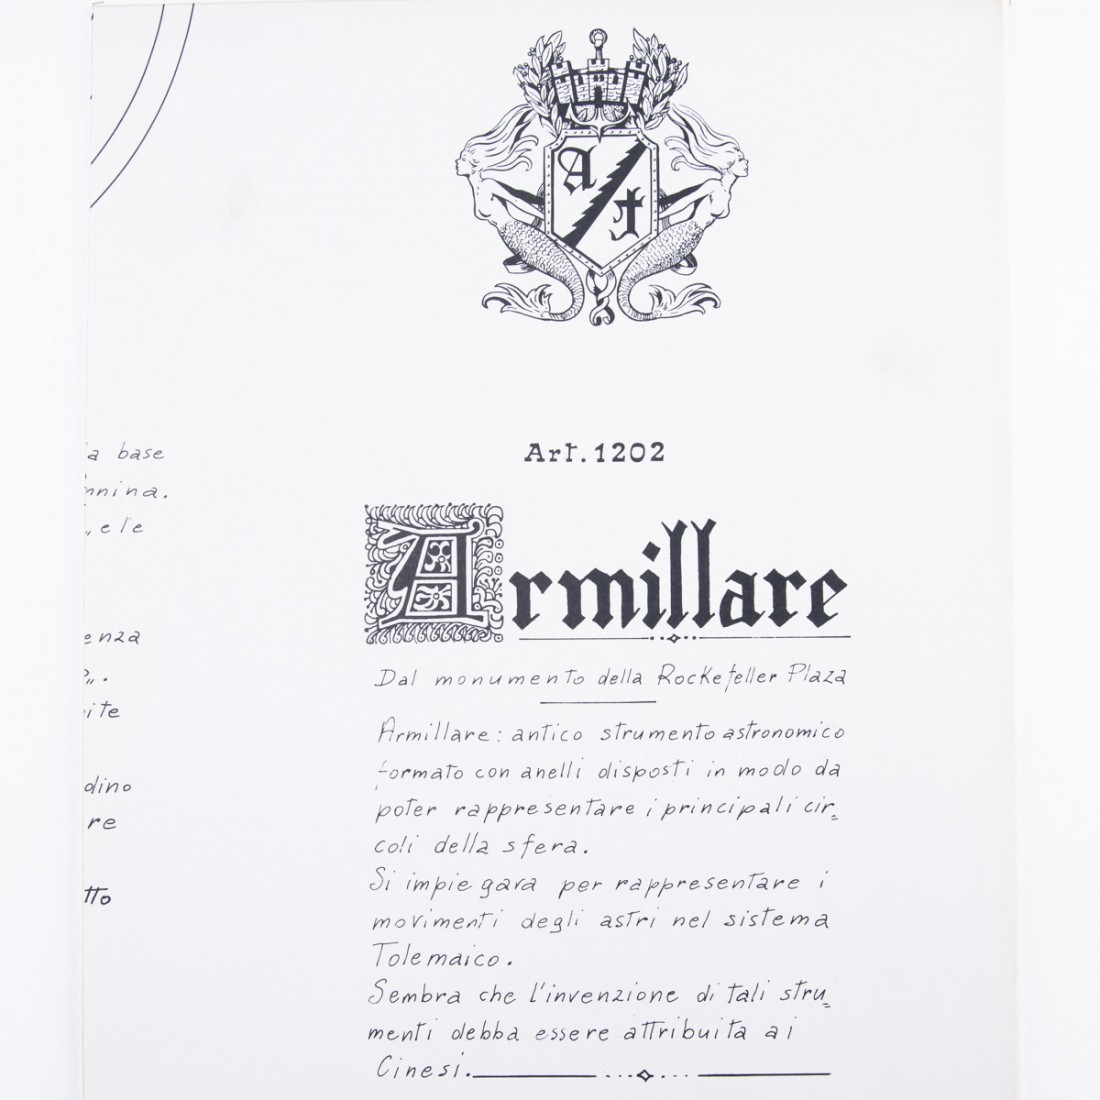 A
t
a base
nnina.
„ e le
enza
„.
ite
dino
re
tto
Art. 1202
Armillare
Dal monumento della Rockefeller Plaza
Armillare: antico strumento astronomico
formato con anelli disposti in modo da
poter rappresentare i principali cir=
coli della sfera.
Si impiegava per rappresentare i
movimenti degli astri nel sistema
Tolemaico.
Sembra che l'invenzione di tali stru=
menti debba essere attribuita ai
Cinesi.